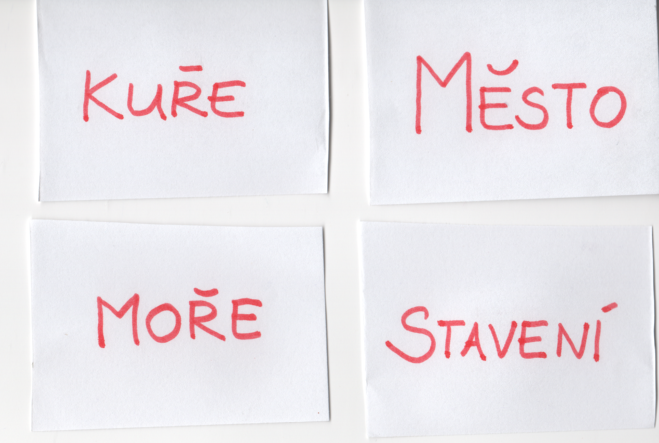 KUŘE
MĚSTO
MOŘE
STAVENÍ